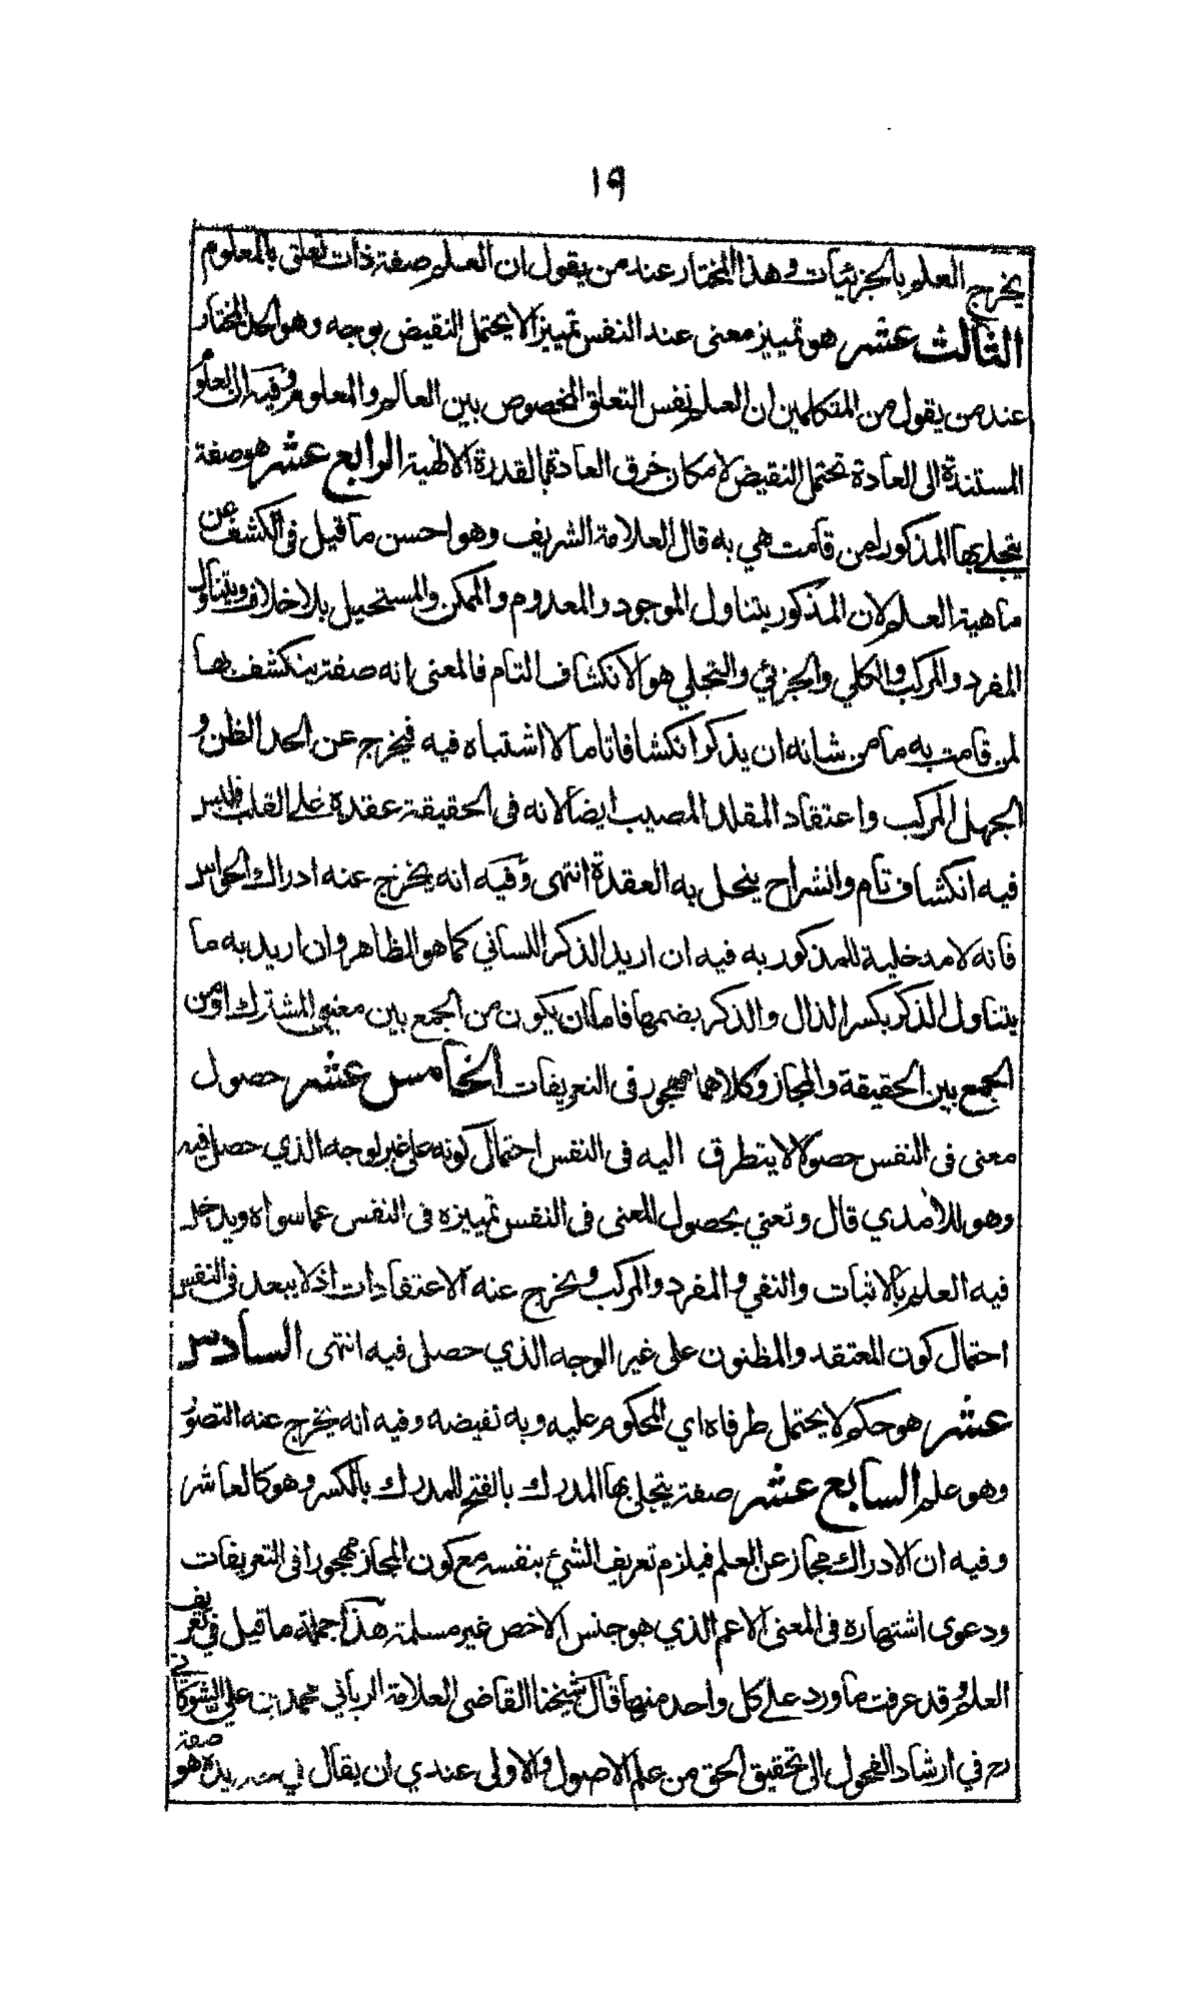 ١٩
يخرج العلم بالجزئيات وهذا المختار عند من يقول ان العلم صفة ذات تعلق بالمعلوم
الثالث عشر هو تمييز معنى عند النفس تمييزا لا يحتمل النقيض بوجه وهو الحد المختار
عند من يقول من المتكلمين ان العلم نفس التعلق المخصوص بين العالم والمعلوم وفيه ان العلوم
المستندة الى العادة تحتمل النقيض لامكان خرق العادة بالقدرة الالهية الرابع عشر هو صفة
يتجلى بها المذكور لمن قامت هي به قال العلامة الشريف وهو احسن ما قيل في الكشف عن
ماهية العلم لان المذكور يتناول الموجود والمعدوم والممكن والمستحيل بلا خلاف ويتناول
المفرد والمركب والكلي والجزئي والتجلي هو الانكشاف التام فالمعنى انه صفة ينكشف بها
لمن قامت به ما من شانه ان يذكر انكشافا تاما لا اشتباه فيه فيخرج عن الحد الظن و
الجهل المركب واعتقاد المقلد المصيب ايضا لانه في الحقيقة عقدة على القلب فليس
فيه انكشاف تام وانشراح ينحل به العقدة انتهى وفيه انه يخرج عنه ادراك الحواس
فانه لا مدخلية للمذكور به فيه ان اريد الذكر اللساني كما هو الظاهر وان اريد به ما
يتناول الذكر بكسر الذال والذكر بضمها فاما ان يكون من الجمع بين معنيي المشترك او من
الجمع بين الحقيقة والمجاز وكلاهما مهجور في التعريفات الخامس عشر حصول
معنى في النفس حصولا لا يتطرق اليه في النفس احتمال كونه على غير لوجه الذي حصل فيه
وهو للآمدي قال ونعني بحصول المعنى في النفس تمييزه في النفس عما سواه ويدخل
فيه العلم بالاثبات والنفي والمفرد والمركب ويخرج عنه الاعتقادات اذ لا يبعد في النفس
احتمال كون المعتقد والمظنون على غير الوجه الذي حصل فيه انتهى السادس
عشر هو حكم لا يحتمل طرفاه اي المحكوم عليه وبه نقيضه وفيه انه يخرج عنه التصور
وهو علم السابع عشر صفة يتجلى بها المدرك بالفتح للمدرك بالكسر وهو كالعاشر
وفيه ان الادراك مجاز عن العلم فيلزم تعريف الشئ بنفسه مع كون المجاز مهجورا في التعريفات
ودعوى اشتهاره في المعنى الاعم الذي هو جنس الاخص غير مسلمة هذا جملة ما قيل في تعريف
العلم وقد عرفت ما ورد على كل واحد منها قال شيخنا القاضي العلامة الرباني محمد بن علي الشوكاني
رح في ارشاد الفحول الى تحقيق الحق من علم الاصول والاولى عندي ان يقال في تحديده هو صفة